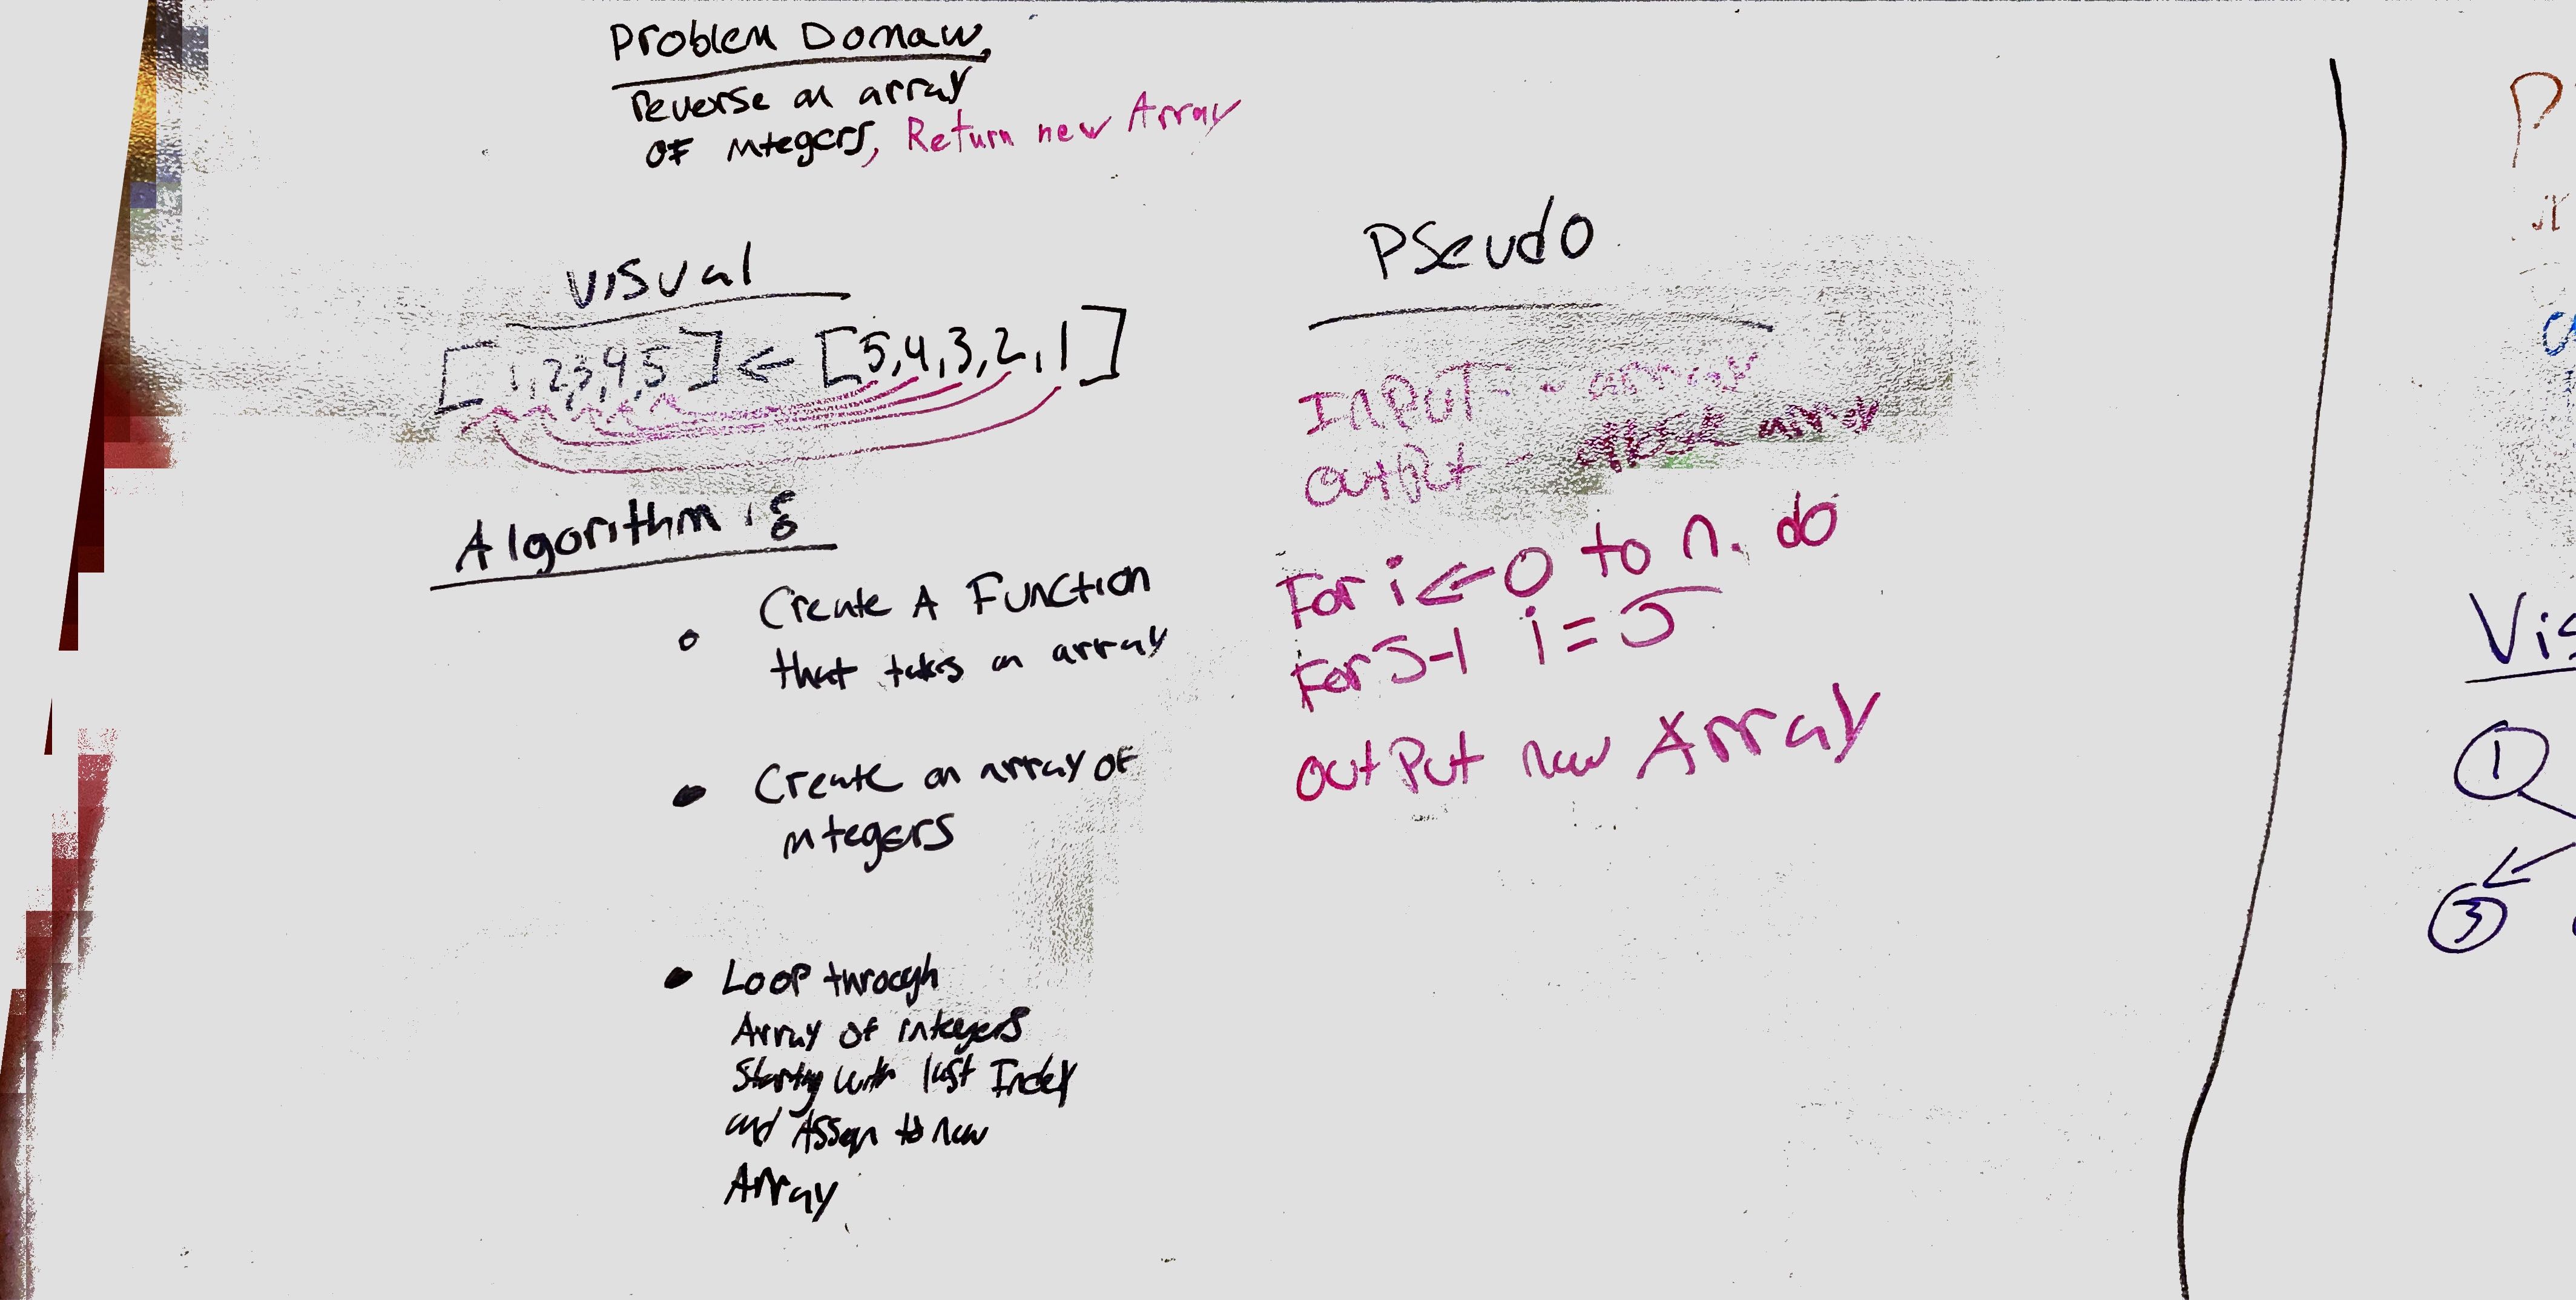 Problem Domain
reverse an array
of integers, Return new Array
Visual
[1,2,3,4,5] ← [5,4,3,2,1]
Algorithm
Create A Function
that takes an array
Create an array of
integers
Loop through
Array of integers
Starting with last Index
and Assign to new
Array
Pseudo
INPUT - array
output - array
For i ← 0 to n. do
For J-1 i = J
output new Array
P
Vis
1
3